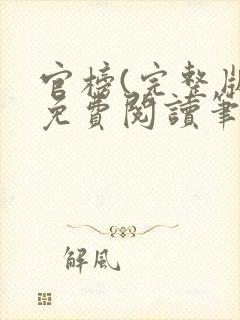 官榜(完整版
免費閱讀筆
解風